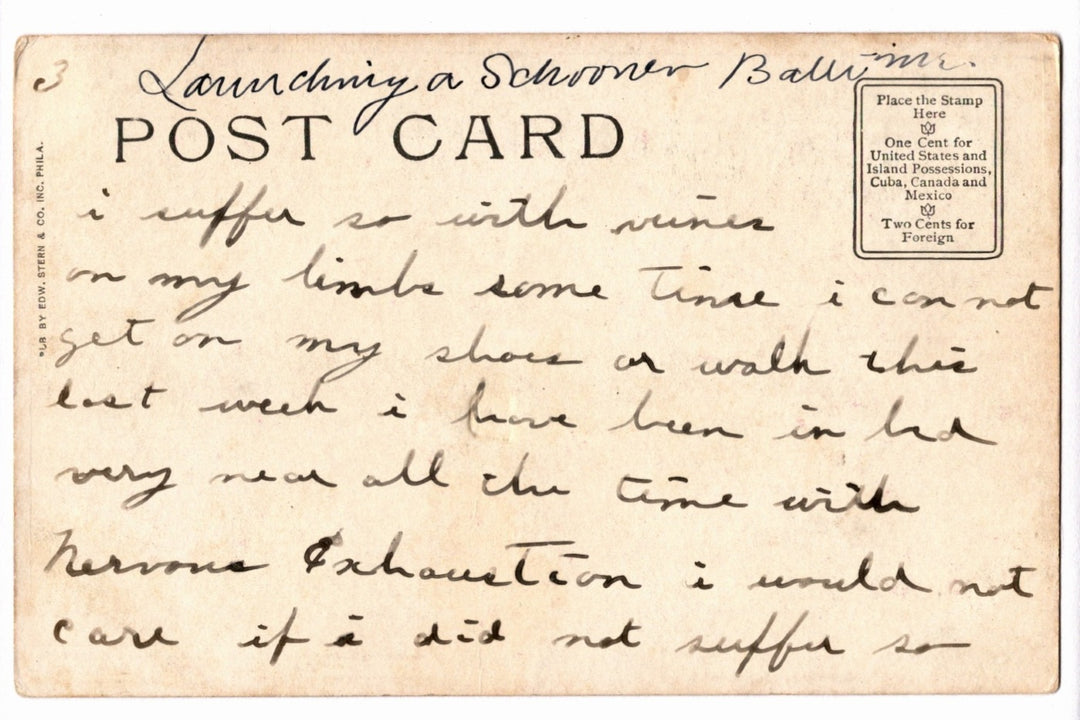 3
Launching a Schooner
POST CARD
Place the Stamp
Here
One Cent for
United States and
Island Possessions,
Cuba, Canada and
Mexico
Two Cents for
Foreign
PUB BY EDW. STERN & CO. INC. PHILA.
i suffer so with
on my limbs some time i can not
get on my shoes or walk this
last week i have been in bed
very near all the time with
Nervous Exhaustion i would not
care if i did not suffer so